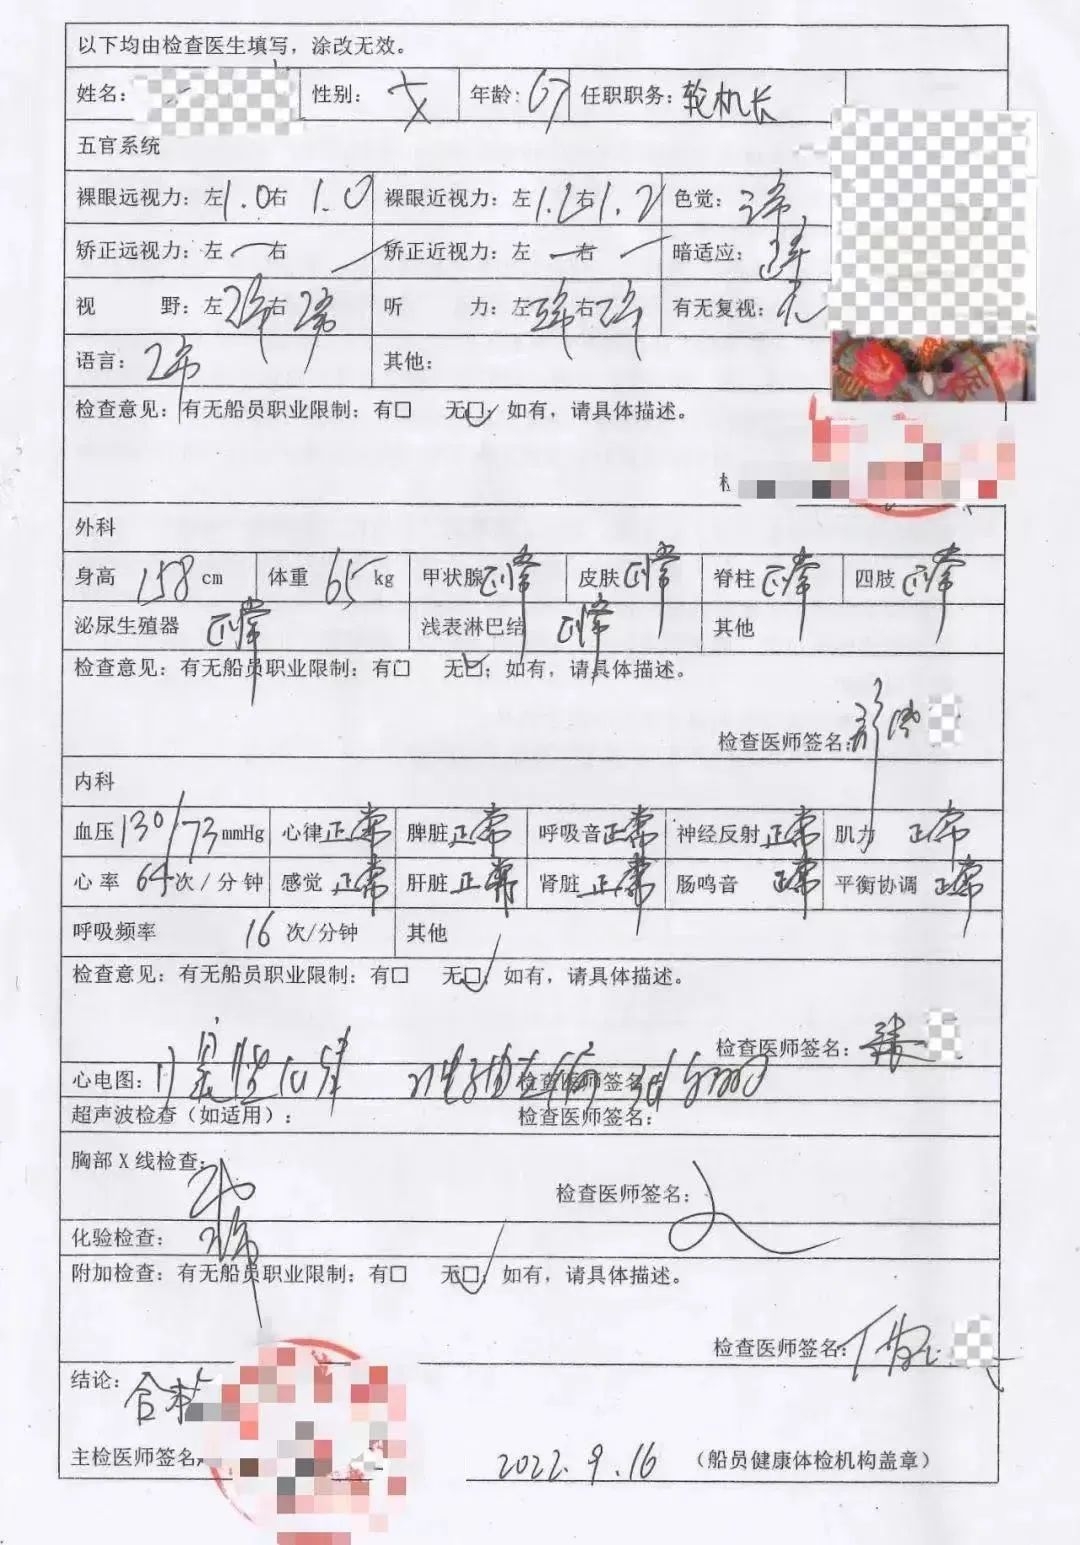 以下均由检查医生填写，涂改无效。
姓名： 性别：女 年龄：67 任职职务：轮机长
五官系统
裸眼远视力：左1.0右1.0 裸眼近视力：左1.2右1.2 色觉：正常
矫正远视力：左—右— 矫正近视力：左—右— 暗适应：正常
视野：左正常右正常 听力：左正常右正常 有无复视：无
语言：正常 其他：
检查意见：有无船员职业限制：有□ 无☑；如有，请具体描述。
外科
身高158cm 体重65kg 甲状腺正常 皮肤正常 脊柱正常 四肢正常
泌尿生殖器正常 浅表淋巴结正常 其他
检查意见：有无船员职业限制：有□ 无☑；如有，请具体描述。
检查医师签名：
内科
血压130/73mmHg 心律正常 脾脏正常 呼吸音正常 神经反射正常 肌力正常
心率64次/分钟 感觉正常 肝脏正常 肾脏正常 肠鸣音正常 平衡协调正常
呼吸频率16次/分钟 其他
检查意见：有无船员职业限制：有□ 无☑；如有，请具体描述。
检查医师签名：
心电图： 检查医师签名：
超声波检查（如适用）： 检查医师签名：
胸部X线检查： 检查医师签名：
化验检查：正常
附加检查：有无船员职业限制：有□ 无☑；如有，请具体描述。
检查医师签名：
结论：合格
主检医师签名： 2022.9.16 （船员健康体检机构盖章）